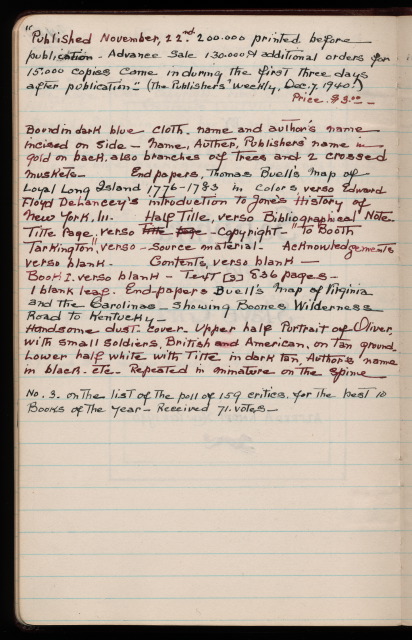 "Published November, 22nd 200.000 printed before
publication - Advance Sale 130.000 & additional orders for
15.000 copies came in during the first three days
after publication" (The Publishers' Weekly, Dec. 7. 1940.)
Price. $3.00 -
Bound in dark blue cloth, name and author's name
incised on side - Name, Auther, Publishers' name in
gold on back, also branches of trees and 2 crossed
muskets - Endpapers, Thomas Buell's map of
Loyal Long Island 1776-1783 in colors, verso Edward
Floyd DeLancey's introduction to Jones History of
New York, III. Half Title, verso Bibliographical Note
Title Page. verso title page - Copyright - "To Booth
Tarkington", verso - Source material - Acknowledgements
verso blank - Contents, verso blank -
Book I. verso blank - Text [3] 836 pages -
1 blank leaf. End-papers Buell's map of Virginia
and the Carolinas - showing Boones Wilderness
Road to Kentucky -
Handsome dust-cover - Upper half Portrait of Oliver,
with small soldiers, British and American, on tan ground.
Lower half white with Title in dark tan, Author's name
in black - etc - Repeated in minature on the spine
No. 3. on the list of the poll of 159 critics, for the best 10
Books of the Year - Received 71. votes -